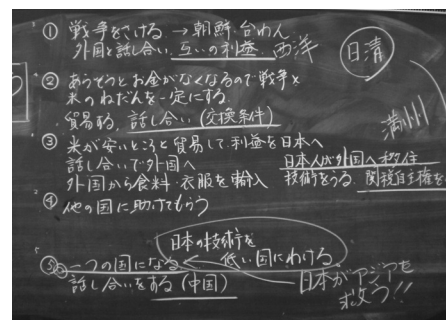 ① 戦争をさける → 朝鮮、台わん
外国と話し合い、互いの利益、西洋
日清
② あらそうとお金がなくなるので戦争×
米のねだんを一定にする
貿易する、話し合い(交換条件)
満州
③ 米が安いところと貿易して、利益を日本へ
話し合いで外国へ
外国から食料・衣服を輸入
日本人が外国へ移住
技術をうる 関税自主権を
④ 他の国に助けてもらう
日本の技術を
低い国にわける
⑤ 一つの国になる ←
話し合いをする(中国)
日本がアジアを
救う!!